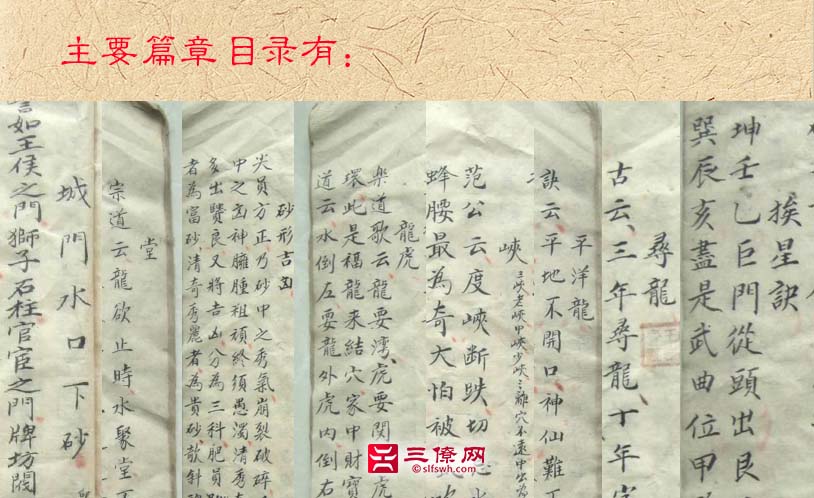 主要篇章目录有：
挨星訣
坤壬乙巨門從頭出艮
巽辰亥盡是武曲位甲
尋龍
古云三年尋龍十年
平洋龍
訣云平地不開口神仙難
峽
三峽老峽中峽少峽三離穴不遠中出為
范公云度峽断跌切
蜂腰最為奇大怕被
龍虎
樂道歌云龍要灣虎要関虎
環此是福龍来結穴家中財寶
道云水倒左要龍外虎内倒右
砂形吉凶
尖員方正乃砂中之秀氣崩裂破碎
中之凶神臃腫祖頑終須愚濁清秀
多出賢良又將吉凶分為三科肥員
者為富砂清奇秀麗者為貴砂欹斜
堂
宗道云龍欲止時水聚堂
城門水口下砂
如王侯之門獅子石柱官宦之門牌坊閥
三僚网
slfswh.com